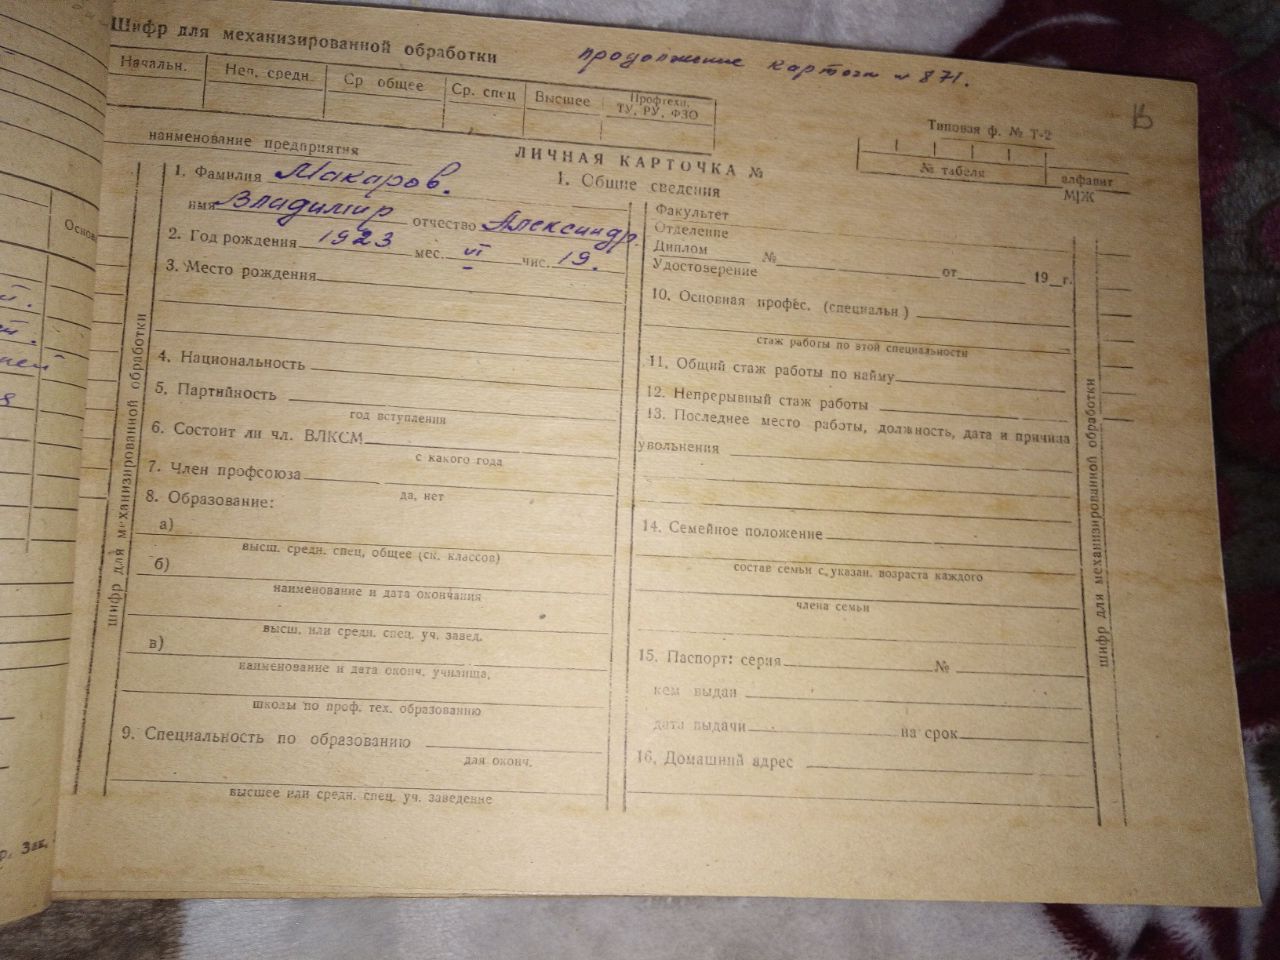 Шифр для механизированной обработки
продолжение карточки № 871.
Начальн. Неп. средн. Ср общее Ср. спец Высшее Профтехн. ТУ, РУ, ФЗО
В
Типовая ф. № Т-2
№ табеля алфавит
М|Ж
наименование предприятия
ЛИЧНАЯ КАРТОЧКА №
1. Общие сведения
1. Фамилия Макаров.
имя Владимир отчество Александр.
2. Год рождения 1923 мес. VI чис. 19.
3. Место рождения
4. Национальность
5. Партийность
год вступления
6. Состоит ли чл. ВЛКСМ
с какого года
7. Член профсоюза
да, нет
8. Образование:
а)
высш. средн. спец, общее (ск. классов)
б)
наименование и дата окончания
высш. или средн. спец. уч. завед.
в)
наименование и дата оконч. училища,
школы по проф. тех. образованию
9. Специальность по образованию
дая оконч.
высшее или средн. спец. уч. заведение
Факультет
Отделение
Диплом № от 19 г.
Удостоверение
10. Основная профес. (специальн.)
стаж работы по этой специальности
11. Общий стаж работы по найму
12. Непрерывный стаж работы
13. Последнее место работы, должность, дата и причина
увольнения
14. Семейное положение
состав семьи с указан. возраста каждого
члена семьи
15. Паспорт: серия №
кем выдан
дата выдачи на срок
16. Домашний адрес
шифр для механизированной обработки
шифр для механизированной обработки
Основ
Зак.